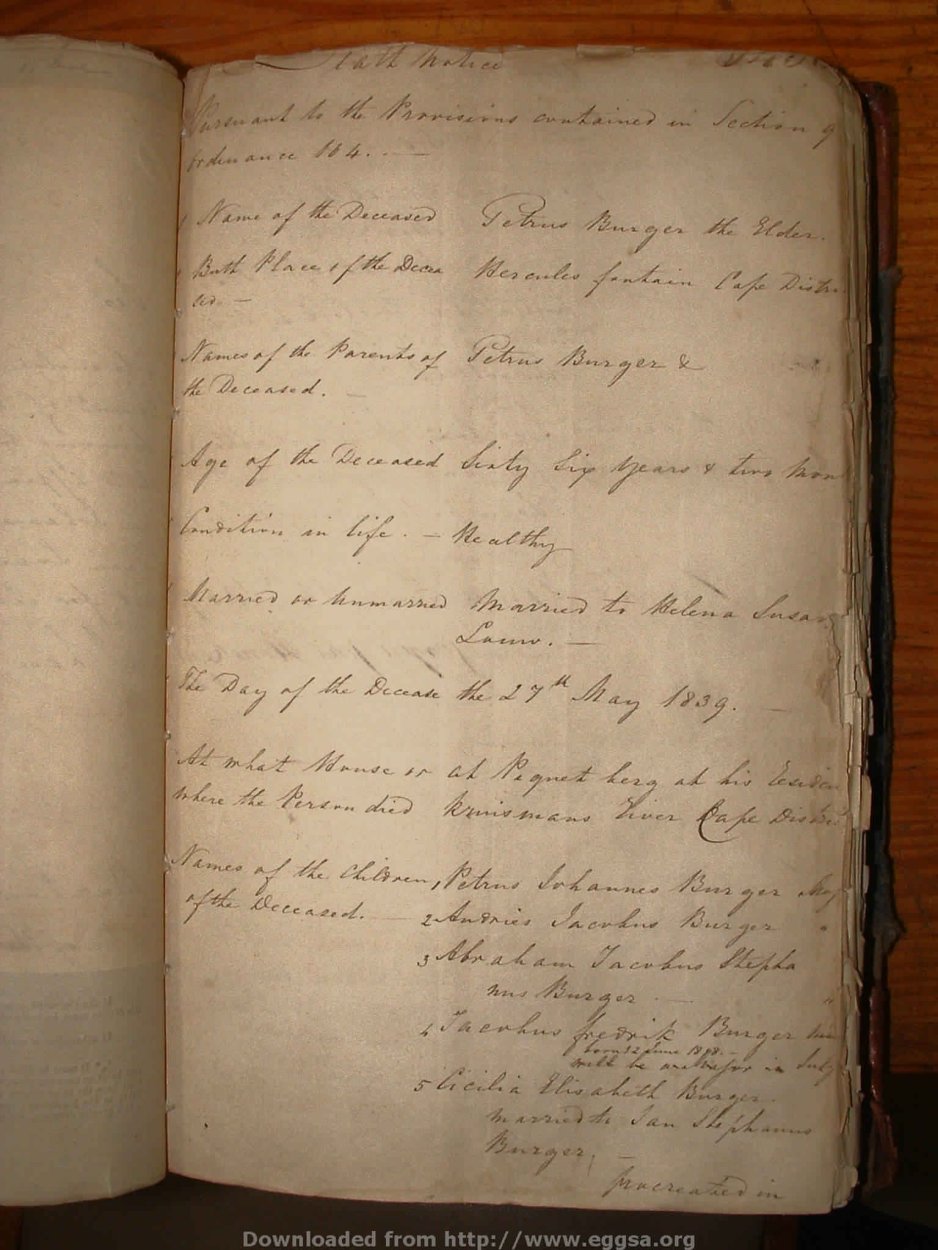 Death Notice
Pursuant to the Provisions contained in Section 9
Ordinance 104. —
Name of the Deceased Petrus Burger the Elder.
Birth Place of the Decea Hercules fontain Cape Distri
sed —
Names of the Parents of Petrus Burger &
the Deceased. —
Age of the Deceased Sixty Six years & two Mon
Condition in life. — Healthy
Married or Unmarried Married to Helena Susan
Louw. —
The Day of the Decease the 27th May 1839. —
At what House or at Piquet berg at his Residen
where the Person died kruismans River Cape Distric
Names of the Children 1 Petrus Johannes Burger Maj
of the Deceased. — 2 Andries Jacobus Burger "
3 Abraham Jacobus Stepha
nus Burger — "
4 Jacobus fredrik Burger
born 12 June
will be major in July
5 Cicilia Elisabeth Burger.
married to Jan Stephanus
Burger, —
procreated in
Downloaded from http://www.eggsa.org